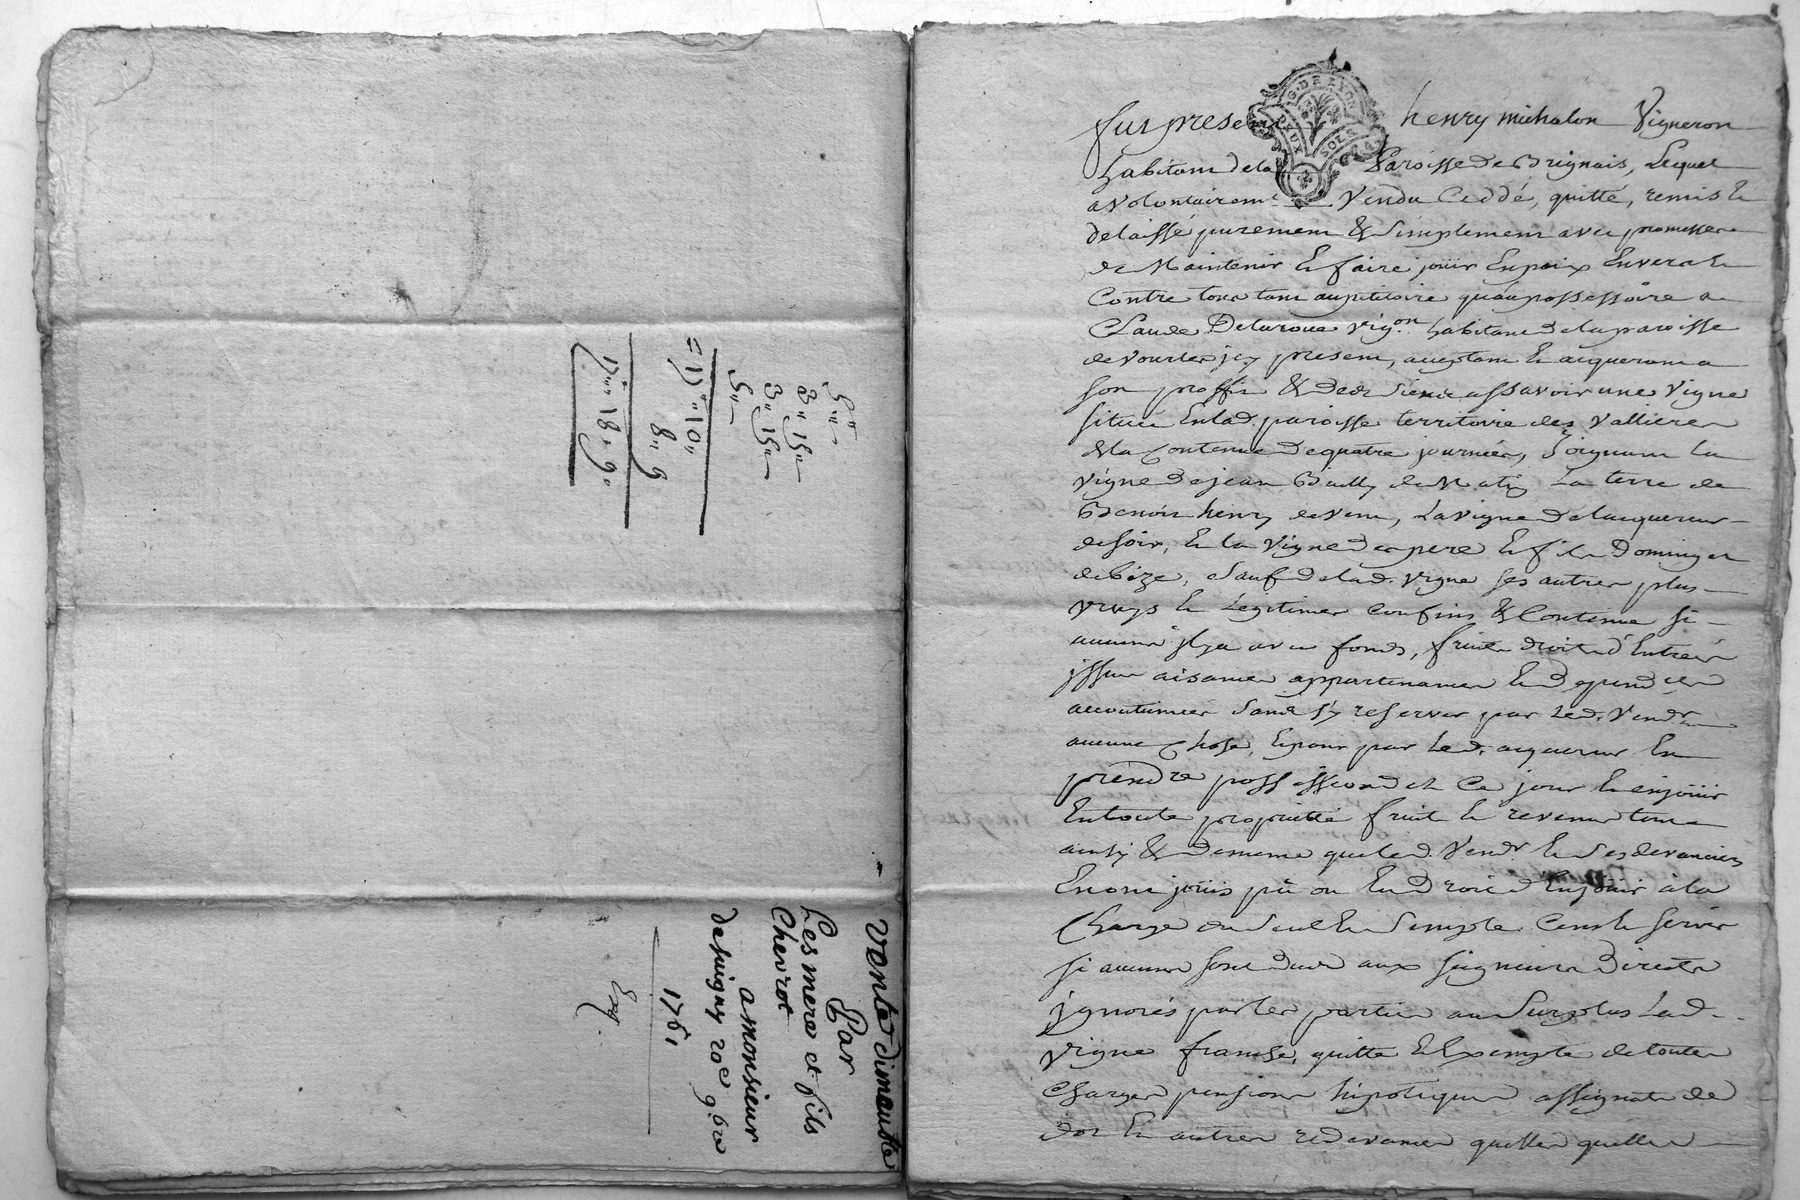 5"
3" 15"
3" 15"
5"
= 17" 10"
8" 9
17" 18" 9
Vente dimeuble
Par
Les mere et fils
Chevrot
a monsieur
20e 9bre
1761
G. DE LYON
DEUX SOLS
fut present henry michalon Vigneron
habitant de la Paroisse de Brignais, Lequel
a volontairemt vendu Ceddé, quitté, remis et
delaissé purement & simplement avec promesse
de Maintenir et faire joüir en paix envers et
Contre tous tant au petitoire qu'au possessoire a
Claude Delaroue vigon habitant de la paroisse
de vourles jcy present, acceptant et acquerant a
son proffit & des siens assavoir une Vigne
située en lad. paroisse territoire des Vallieres
de la Contenue de quatre journées, Joignant la
vigne de jean Bailly de Matin La terre de
Benoit henry de vent, La vigne de lacquereur
de soir, et la vigne des pere et fils Dominger
de bize, sauf de lad. vigne ses autres plus
vrays et Legitimes confins & Contenue si
aucuns il y a avec fonds, fruits droits d'Entrées
jssues aisances appartenances et dependces
accoutumées sans s'y reserver par Led. Vendr
aucune Chose, et pour par Led. acquereur en
prendre possession dez Ce jour et enjoüir
En toute proprietté fruits et revenus tout
ainsy & de meme que led. Vendr et ses devanciers
En ont joüis pû ou eu Droit d'Enjouir à la
Charge du seul et simple Cens et servis
si aucuns sont deus aux seigneurs Directs
jgnorés par les parties au surplus Lad.
Vigne franche, quitte et Exempte de toutes
Charges pensions hipoteques assignats de
dot et autres redevances quelles quelles